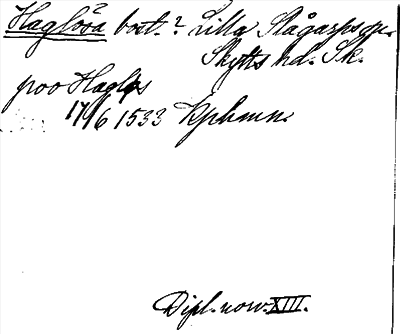 Haglösa bost.? Lilla Slågarps sn.
Skytts hd. Sk.
poo Hagløs
17/6 1533 Kphmn.
Dipl. norv. XIII.